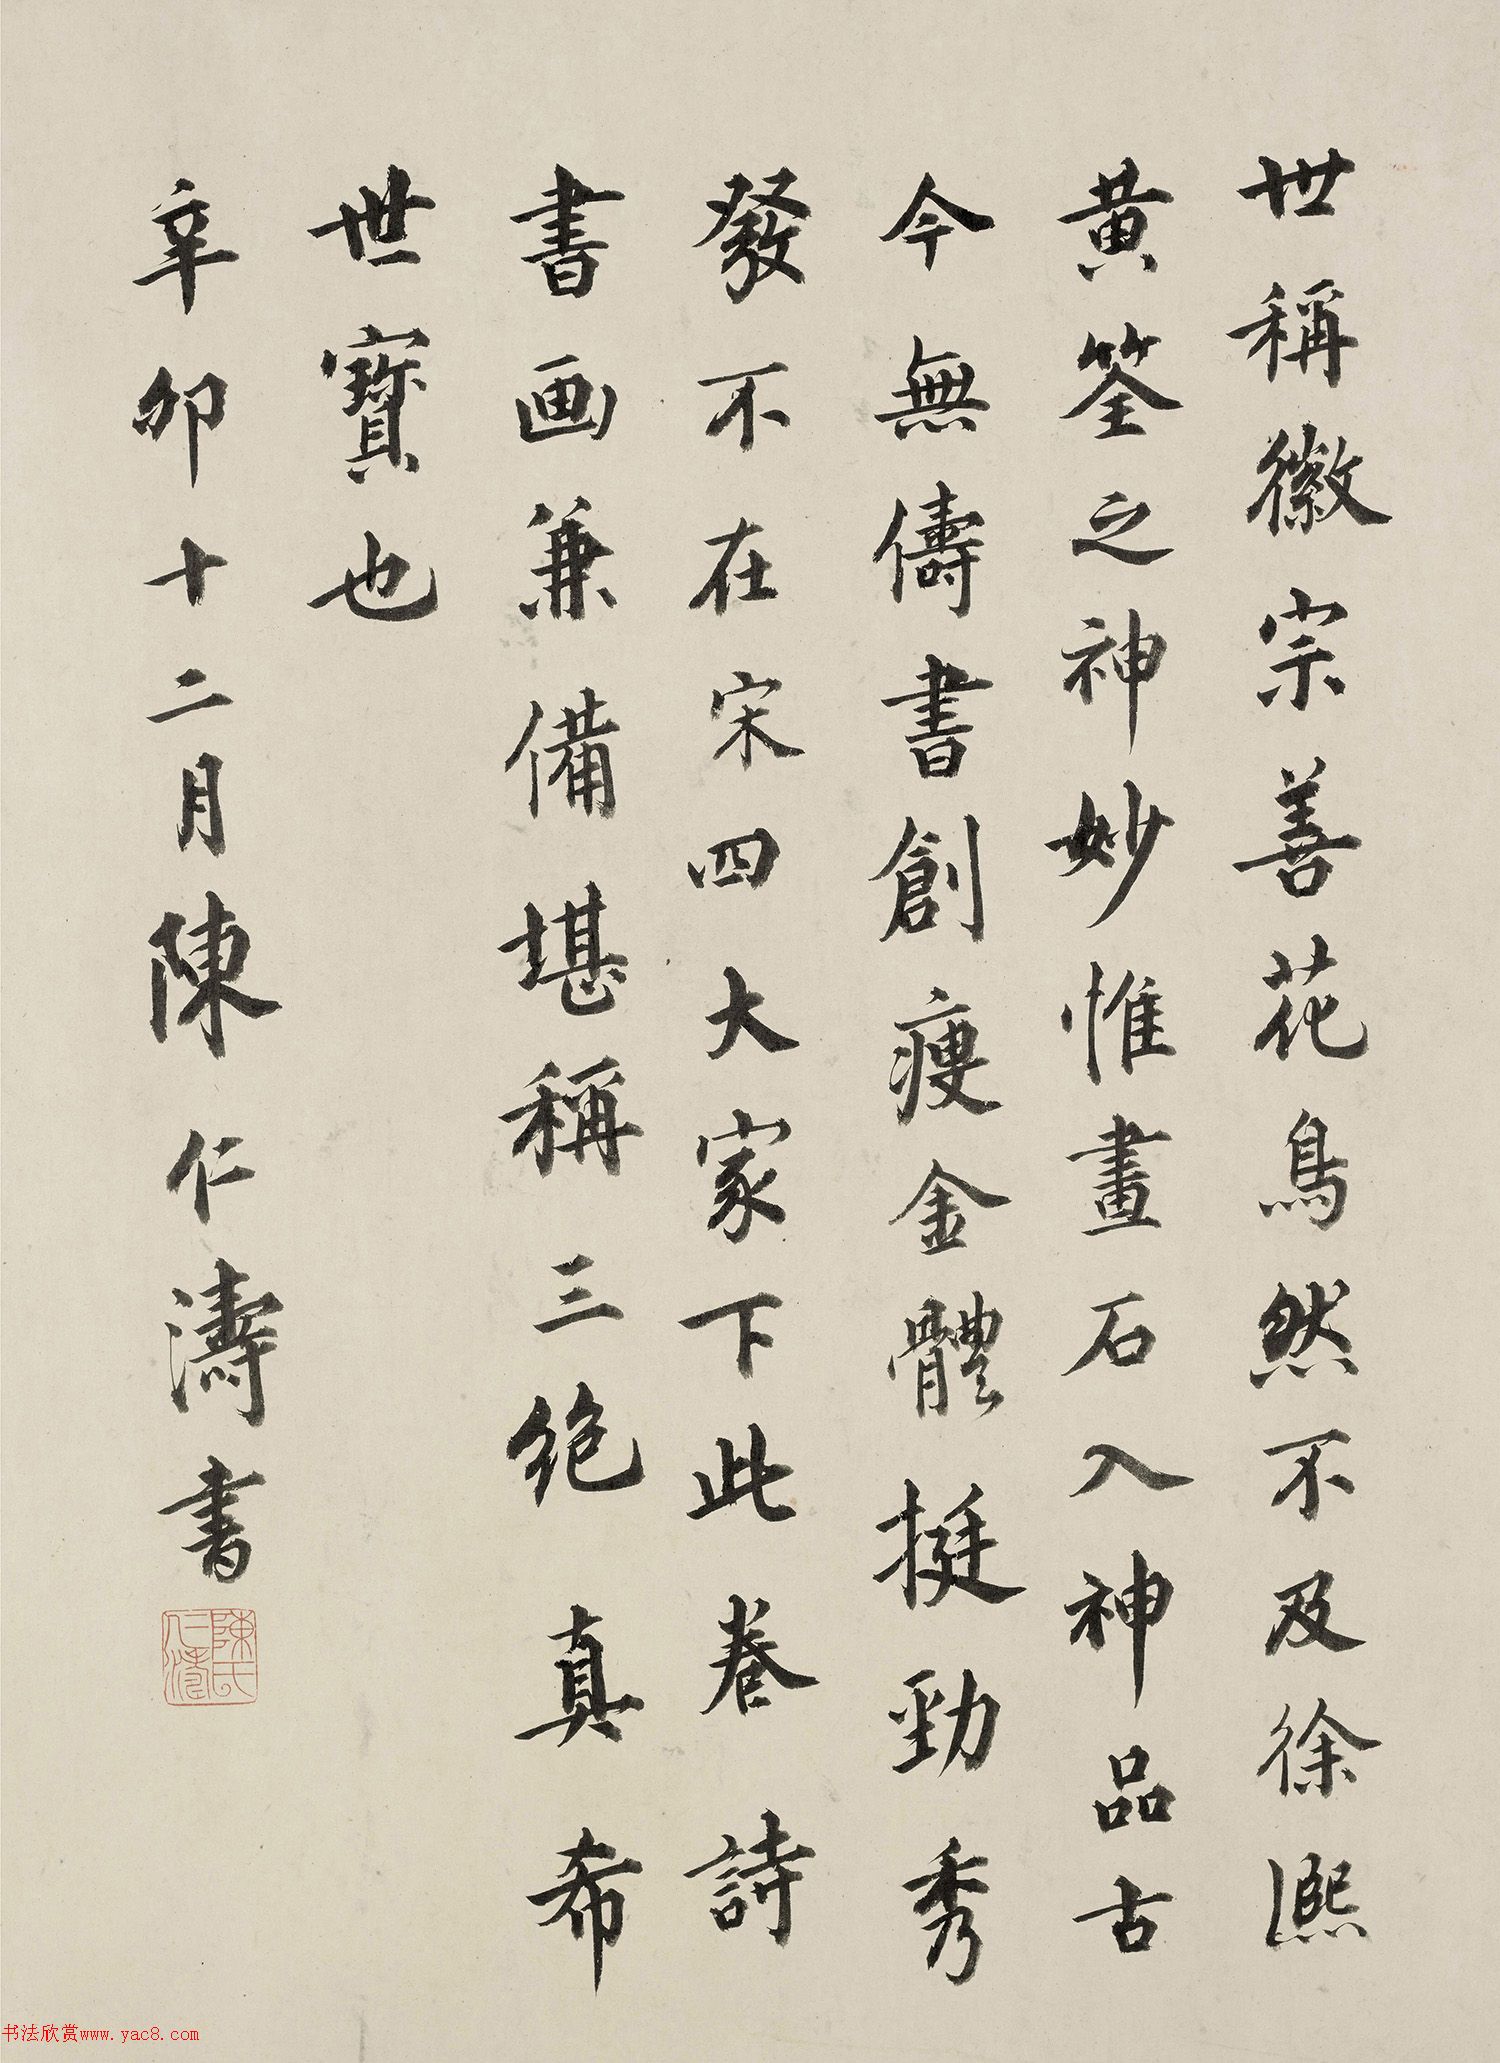 世稱徽宗善花鳥然不及徐熙
黄筌之神妙惟畫石入神品古
今無儔書創瘦金體挺勁秀
發不在宋四大家下此卷詩
書画兼備堪稱三絶真希
世寶也
辛卯十二月陳仁濤書
陳氏仁濤
书法欣赏www.yac8.com